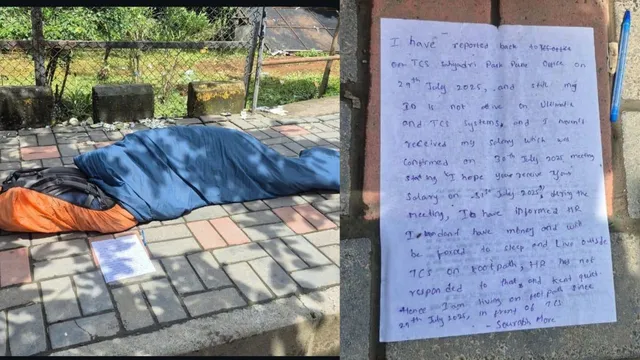 I have reported back to office
on TCS Sahyadri Park Pune Office on
29th July 2025, and still my
ID is not active on Ultimatix
and TCS Systems, and I haven't
received my salary which was
confirmed on 30th July 2025 meeting
stating "I hope you receive your
Salary on 31st July 2025", during the
meeting, I have informed HR
I don't have money and will
be forced to sleep and live outside
TCS on footpath, HR has not
responded to that and kept quiet
Hence I am living on footpath since
29th July 2025, in front of TCS
- Saurabh More